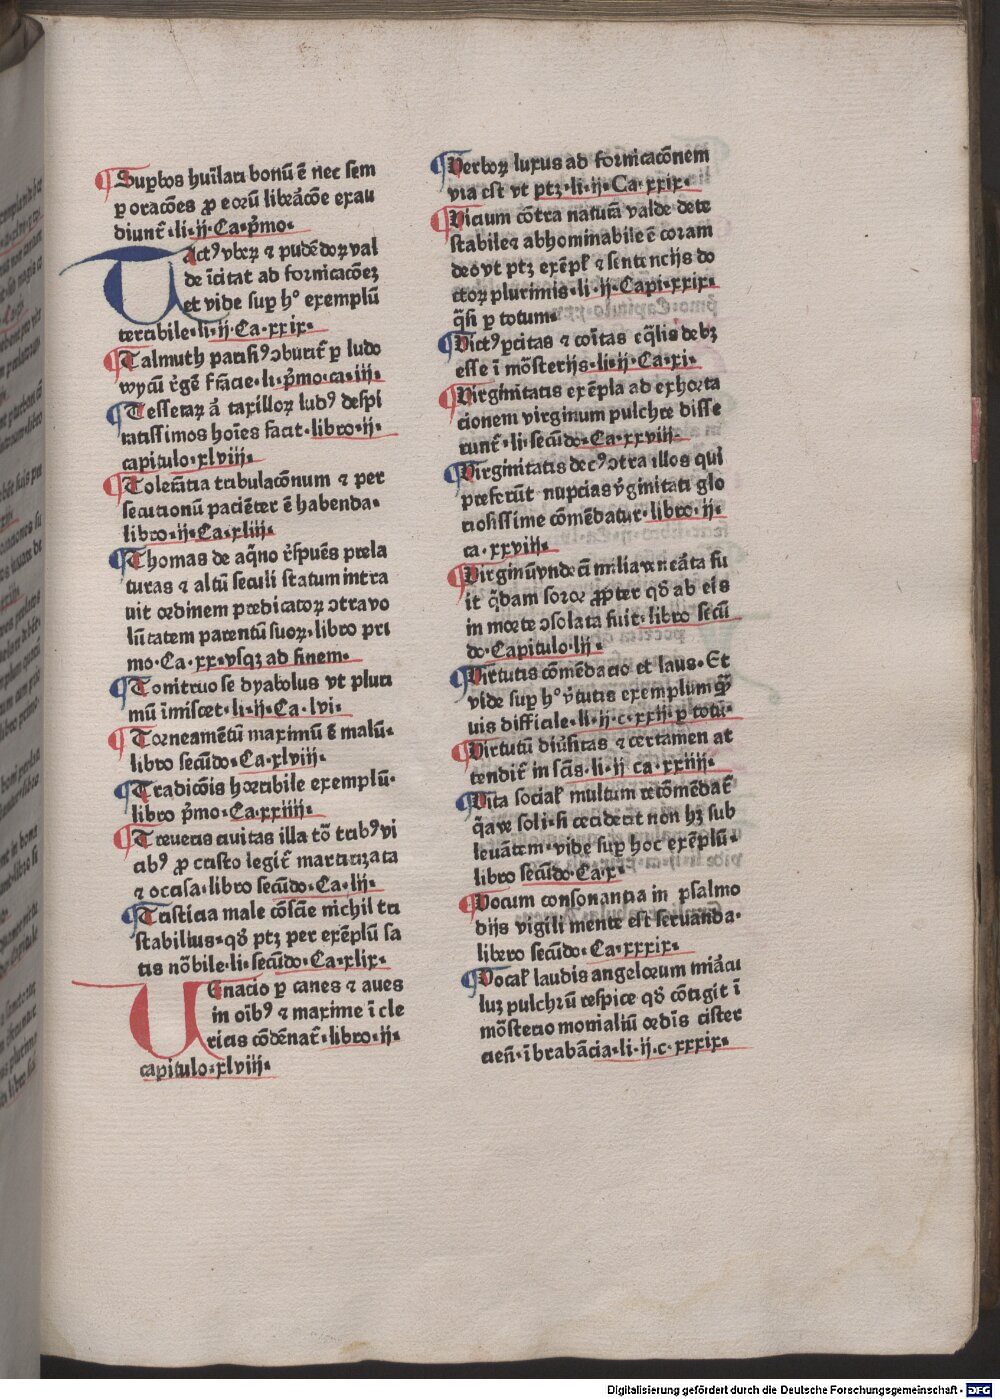 ¶Supbos huiliari bonū ē nec sem
ꝑ oracōes ꝓ eorū libeācōe exau
diunt᷑·li·ij·Ca·pͥmo·
TActꝰ vbeꝝ ⁊ pudēdoꝝ val
de īcitat ad fornicacōeʒ
et vide suꝑ hᵒ exemplū
terribile·li·ij·Ca·xxix·
¶Talmuth parisiꝰ ↄburit᷑ ꝑ ludo
wycū r̄gē frācie·li·pͥmo·ca·iij·
¶Tesseraꝝ a᷑ taxilloꝝ ludꝰ despi
catissimos hoīes facit·libro·ij·
capitulo·xlviij·
¶Tolerātia tribulaconum ⁊ per
secutionū paciēter ē habenda·
libro·ij·Ca·xliij·
¶Thomas de aqͥno r̄spuēs prela
turas ⁊ altū seculi statum intra
uit ordinem predicatoꝝ ↄtra vo
lūtatem parentū suoꝝ·libro pri
mo·Ca·xx·vsqʒ ad finem·
¶Tonitruo se dyabolus vt pluri
mū īmiscet·li·ij·Ca·lvi·
¶Torneamētū maximū ē malū·
libro secūdo·Ca·xlviij·
¶Tradicōis horribile exemplū·
libro pͥmo·Ca·xxiiij·
¶Treueris ciuitas illa tō tribꝰ vi
cibꝰ ꝓ cristo legit᷑ martirizata
⁊ occisa·libro secūdo·Ca·lij·
¶Tristicia male cōscīe nichil tri
stabilius·qđ ptʒ per exēplū sa
tis nōbile·li·secūdo·Ca·xlix·
UEnacio ꝑ canes ⁊ aues
in oībꝰ ⁊ maxime ī cle
ricis cōdēnat᷑·libro·ij·
capitulo·xlviij·
¶Verboꝝ luxus ad fornicacōnem
via est vt ptʒ·li·ij·Ca·xxix·
¶Vicium cōtra naturā valde dete
stabile⁊ abhominabile ē coram
deo vt ptʒ exēpl᷑ ⁊ sentencijs do
ctoꝝ plurimis·li·ij·Capi·xxix·
qͣsi ꝑ totum·
¶Victꝰ ꝑcitas ⁊ cōitas eq̄lis debʒ
esse ī mōsterijs·li·ij·Ca·xi·
¶Virginitatis exēpla ad exhorta
cionem virginum pulchre disse
runt᷑·li·secūdo·Ca·xxviij·
¶Virginitatis decꝰ ↄtra illos qui
preferūt nupcias vͥginitati glo
riosissime cōmēdatur·libro·ij·
ca·xxviij·
¶Virginū vndecī milia vnicāta fu
it q̄dam soror ꝓpter qđ ab eis
in morte ↄsolata fuit·libro secū
do·Capitulo·lij·
¶Virtutis cōmēdacio et laus·Et
vide suꝑ hᵒ vͥtutis exemplum qͣm
uis difficile·li·ij·c·xxij·ꝑ totū·
¶Virtutū diūsitas ⁊ certamen at
tendit᷑ in scīs·li·ij ca·xxiiij·
¶Vita social᷑ multum recōmēdat᷑
q̄a ve soli·si ceciderit non hʒ sub
leuātem·vide suꝑ hoc exēplū·
libro secūdo·Ca·x·
¶Vocum consonantia in psalmo
dijs vigili mente est seruanda·
libero secūdo·Ca·xxxix·
¶Vocal᷑ laudis angelorum mirācu
luʒ pulchrū respice qđ cōtigit ī
mōsterio monialiū ordīs cister
cien̄·ī brabācia·li·ij·c·xxxix·
Digitalisierung gefördert durch die Deutsche Forschungsgemeinschaft - DFG